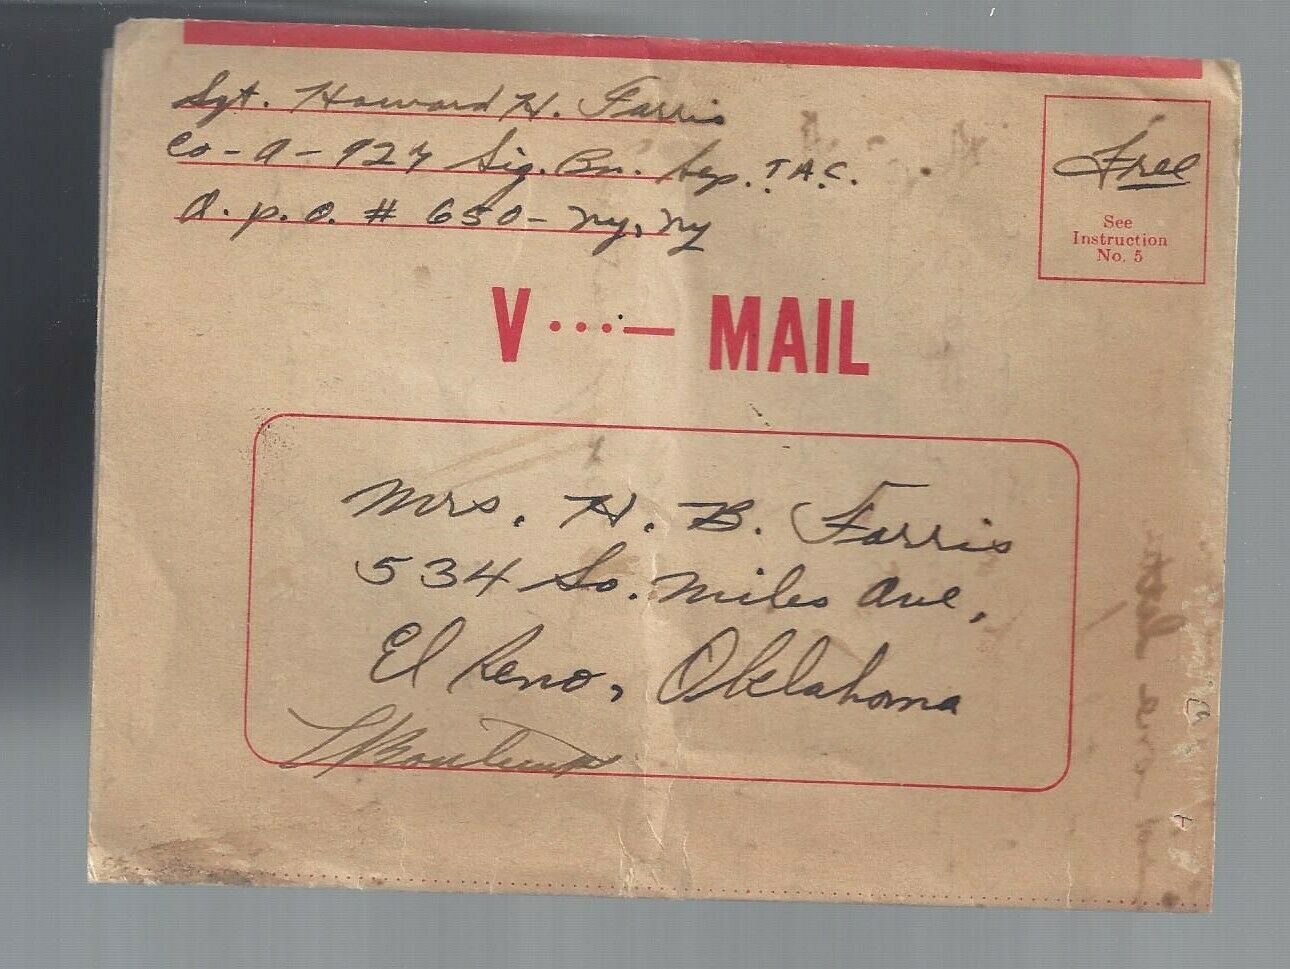 Sgt. Howard H. Farris
Co-A-927 Sig. Bn. Sep. T.A.C.
A.P.O. # 650- NY, NY
Free
See
Instruction
No. 5
V ...— MAIL
Mrs. H. B. Farris
534 So. Miles Ave,
El Reno, Oklahoma